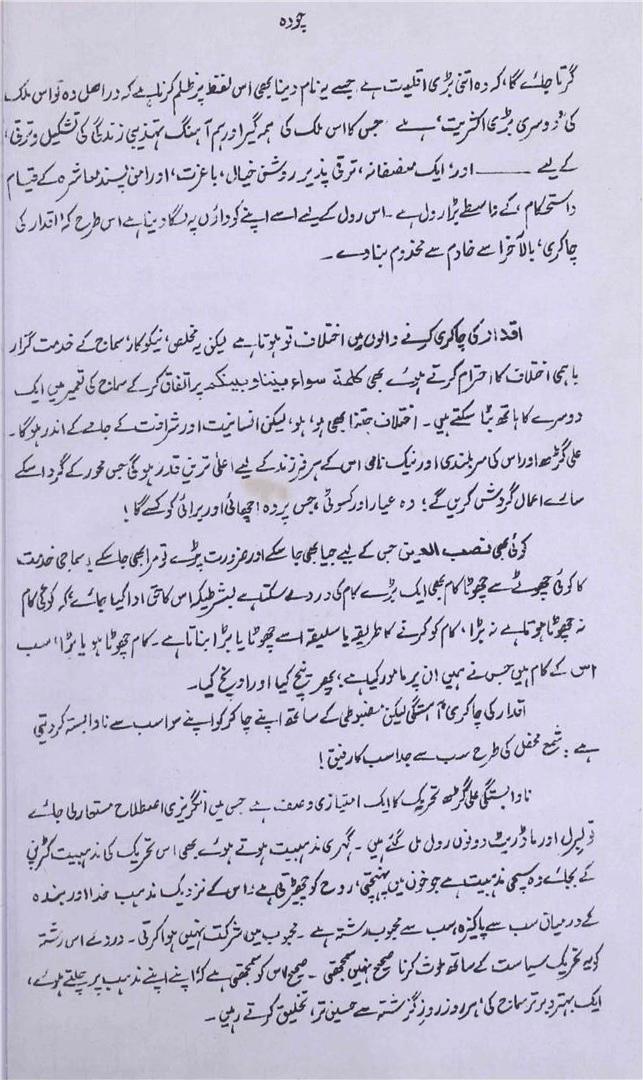 چودہ
گرتا جائے گا، کہ وہ اتنی بڑی اقلیت ہے جسے یہ نام دینا بھی اس لفظ پر ظلم کرنا ہے کہ در اصل وہ تو اس ملک
کی 'دوسری بڑی اکثریت' ہے جس کا اس ملک کی ہمہ گیر اور ہم آہنگ تہذیبی زندگی کی تشکیل و ترقی،
کے لیے ——— اور، ایک منصفانہ، ترقی پذیر روشن خیال، باعزت، اور امن پسند معاشرہ کے قیام
و استحکام، کے واسطے بڑا رول ہے۔ اس رول کے لیے اسے اپنے کو داؤں پہ لگا دینا ہے اس طرح کہ 'اقدار کی
چاکری، بالآخر اسے خادم سے مخدوم بنا دے۔
اقدار کی چاکری کرنے والوں میں اختلاف تو ہوتا ہے لیکن یہ مخلص، نیکوکار، سماج کے خدمت گزار
باہمی اختلاف کا احترام کرتے ہوئے بھی کلمۃ سواء بیننا و بینکم پر اتفاق کر کے سماج کی تعمیر میں ایک
دوسرے کا ہاتھ بٹا سکتے ہیں۔ اختلاف جتنا بھی ہو، ہو، لیکن انسانیت اور شرافت کے جامے کے اندر ہوگا۔
علی گڑھ اور اس کی سربلندی اور نیک نامی اس کے ہر فرزند کے لیے اعلیٰ ترین قدر ہوگی جس محور کے گرد اسکے
سارے اعمال گردش کریں گے؛ وہ عیار اور کسوٹی، جس پر وہ اچھائی اور برائی کو کسے گا!
کوئی بھی نصب العین جس کے لیے جیا بھی جا سکے اور ضرورت پڑے تو مرا بھی جا سکے یہ سماجی خدمت
کا کوئی چھوٹے سے چھوٹا کام بھی ایک بڑے کام کی در دے سکتا ہے بشرطیکہ اس کا حق ادا کیا جائے' کہ کوئی کام
نہ چھوٹا ہوتا ہے نہ بڑا، کام کو کرنے کا طریقہ یا سلیقہ اسے چھوٹا یا بڑا بناتا ہے۔ کام چھوٹا ہو یا بڑا' سب
اس کے کام ہیں جس نے ہمیں ان پر مامور کیا ہے؛ پھر نیچ کیا اور اونچ کیا۔
اقدار کی چاکری آہستگی لیکن مضبوطی کے ساتھ اپنے چاکر کو اپنے سوا سب سے ناوابستہ کر دیتی
ہے: شمع محفل کی طرح سب سے جدا سب کا رفیق!
ناوابستگی علی گڑھ تحریک کا ایک امتیازی وصف ہے جس میں انگریزی اصطلاح مستعار لی جائے
تو لبرل اور ماڈریٹ دونوں رول مل گئے ہیں۔ گہری مذہبیت ہوتے ہوئے بھی اس تحریک کی مذہبیت کٹرپنی
کے بجائے وہ سچی مذہبیت ہے جو خون میں پہنچتی، روح کو چھڑتی ہے: اس کے نزدیک مذہب خدا اور بندہ
کے درمیان سب سے پاکیزہ، سب سے محبوب رشتہ ہے۔ محبوب میں شرکت نہیں ہوا کرتی۔ درد کے اس رشتہ
کو یہ تحریک سیاست کے ساتھ ملوث کرنا صحیح نہیں سمجھتی۔ صحیح اس کو سمجھتی ہے کہ اپنے اپنے مذہب پر چلتے ہوئے،
ایک بہتر و برتر سماج کی 'ہر روز روزِ گزشتہ سے حسین تر، تخلیق کرتے رہیں۔